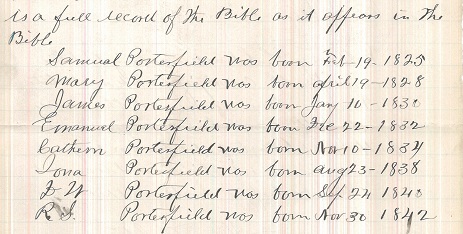 is a full record of the Bible as it appears in the
Bible
Samual Porterfield was born Feb 19 - 1825
Mary Porterfield was born april 19 - 1828
James Porterfield was born Jany 10 - 1830
Emanuel Porterfield was born Dec 22 - 1832
Cathern Porterfield was born Nov 10 - 1834
Iona Porterfield was born aug 23 - 1838
Porterfield was born Sep 24 1840
R. I. Porterfield was born Nov 30 1842